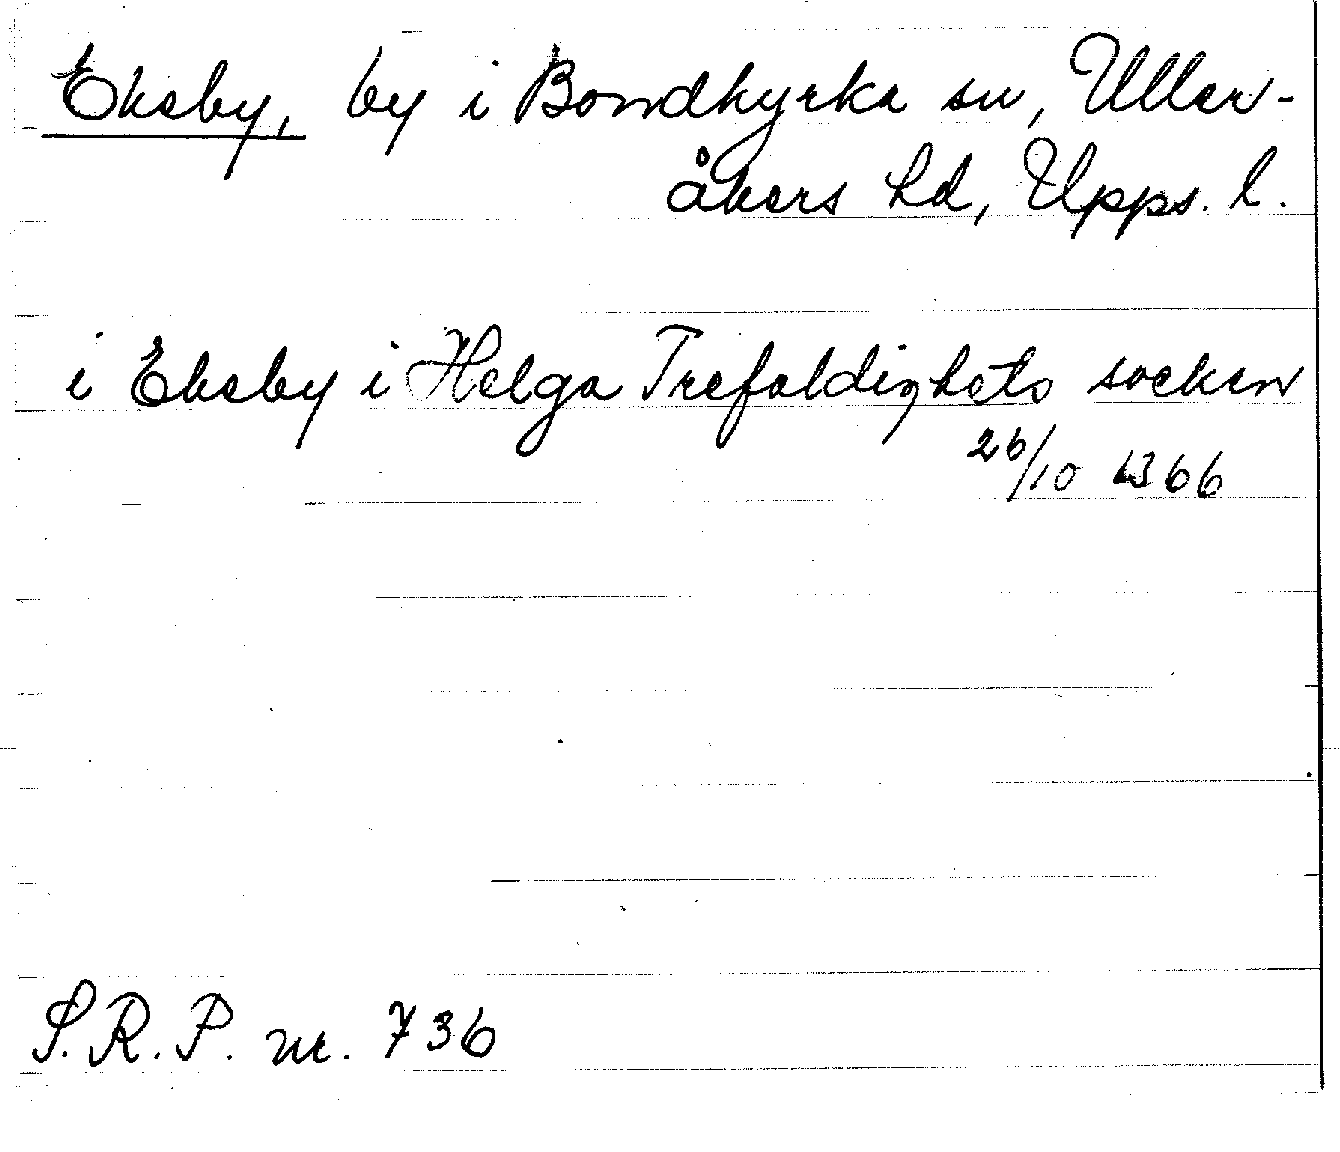 Eksby, by i Bondkyrka sn, Uller-
åkers hd, Upps. l.
i Eksby i Helga Trefaldighets socken
26/10 1366
S.R.P. nr. 736